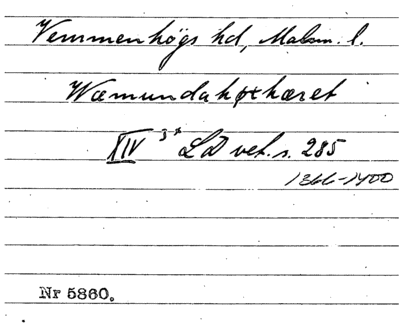 Vemmenhögs hd, Malm. l.
Wæmundahøthæret
XIV 3 LD vet. s. 285
1366-1400
Nr 5860.